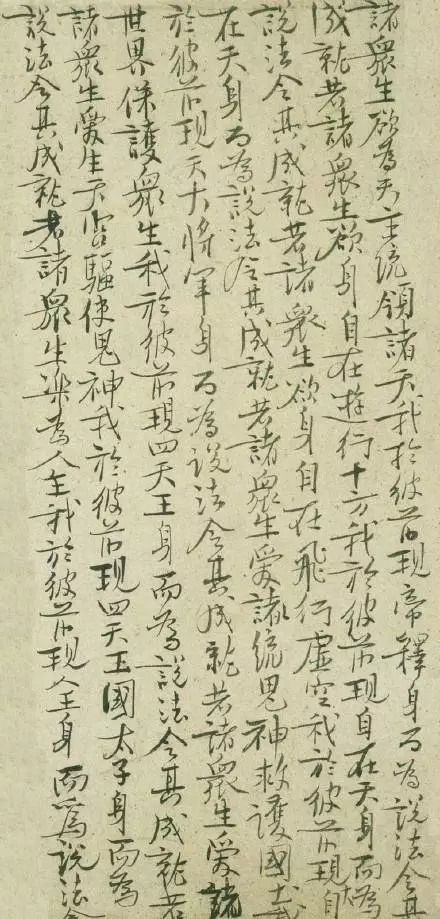 諸眾生欲為天王統領諸天我於彼前現帝釋身而為說法令其
成就若諸眾生欲身自在遊行十方我於彼前現身在天身而為
說法令其成就若諸眾生欲身自在飛行虛空我於彼前現大自
在天身而為說法令其成就若諸眾生愛諸統鬼神救護國土我
於彼前現天大將軍身而為說法令其成就若諸眾生愛
世界保護眾生我於彼前現四天王身而為說法令其成就若
諸眾生愛生天宮驅使鬼神我於彼前現四天王國太子身而為
說法令其成就若諸眾生樂為人主我於彼前現人王身而為說法令